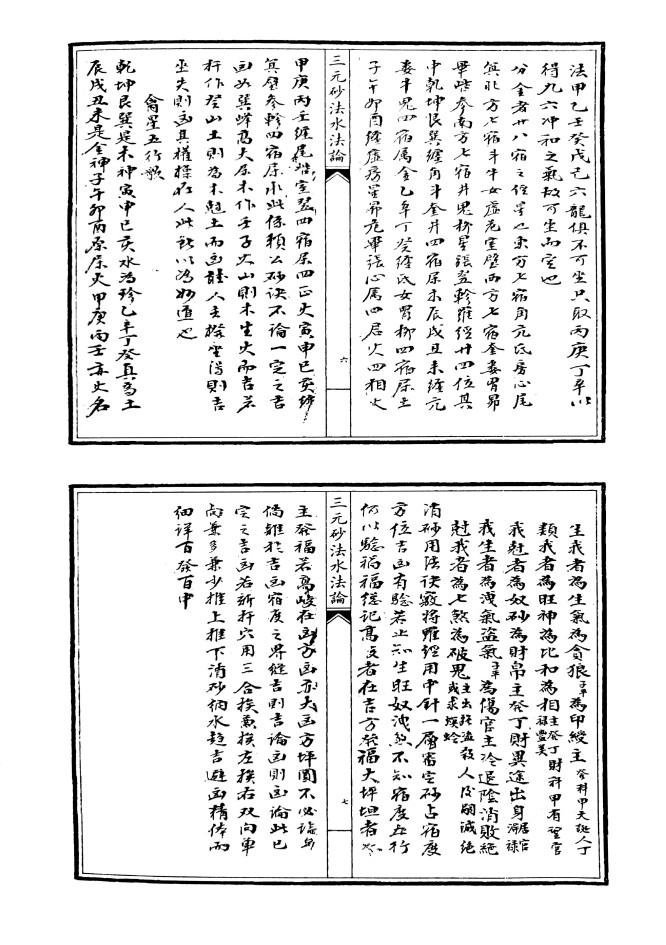 法甲乙壬癸戊己六龍俱不可坐只取丙庚丁辛以
得九六冲和之氣故可坐而定也
分金者廿八宿之位是也東方七宿角亢氐房心尾
箕北方七宿斗牛女虛危室壁西方七宿奎婁胃昴
畢嘴参南方七宿井鬼柳星張翌軫羅經廿四位其
中乾坤艮巽纏角斗奎井四宿屬木辰戌丑未纏亢
婁牛鬼四宿属金乙辛丁癸纏氐女胃柳四宿屬土
子午卯酉纏虛房星昴危畢張心属四层火四相火
三元砂法水法論
六
甲庚丙壬纏尾嘴室翌四宿屬四正火寅申巳亥纏
箕壁参軫四宿屬水此係賴公砂訣不論一定之吉
凶如巽峰高大屬木作壬子火山則木生火而吉若
扦作癸山土則為木尅土而凶
坐失則凶其權操在人此所以為妙道也
龠星五行歌
乾坤艮巽是木神寅申巳亥水為珍乙辛丁癸真為土
辰戌丑未是金神子午卯酉原屬火甲庚丙壬亦火名
生我者為生氣為貪狼 為印綬主
類我者為旺神為比和為相 主癸丁財科甲有望官祿豐美
我尅者為奴砂為財帛主癸丁財異途出身
我生者為洩氣盜氣 為傷官主冷退陰消敗絕
尅我者為七煞為破鬼
三元砂法水法論
七
消砂用法訣竅將羅經用中針一層審定砂占宿度
方位吉凶有驗若止知生旺奴洩煞不知宿度五行
何以驗禍福總記高支者在吉方發福大坪坦者
主癸福若高峻在凶方凶亦大凶方坪圓不必論
倘雜於吉凶宿度之界縫吉則吉論凶則凶論此已
定之吉凶若新扦穴用三合挨煞挨左挨右双向單
向兼多兼少推上推下消砂納水趨吉避凶精俸而
細詳百發百中